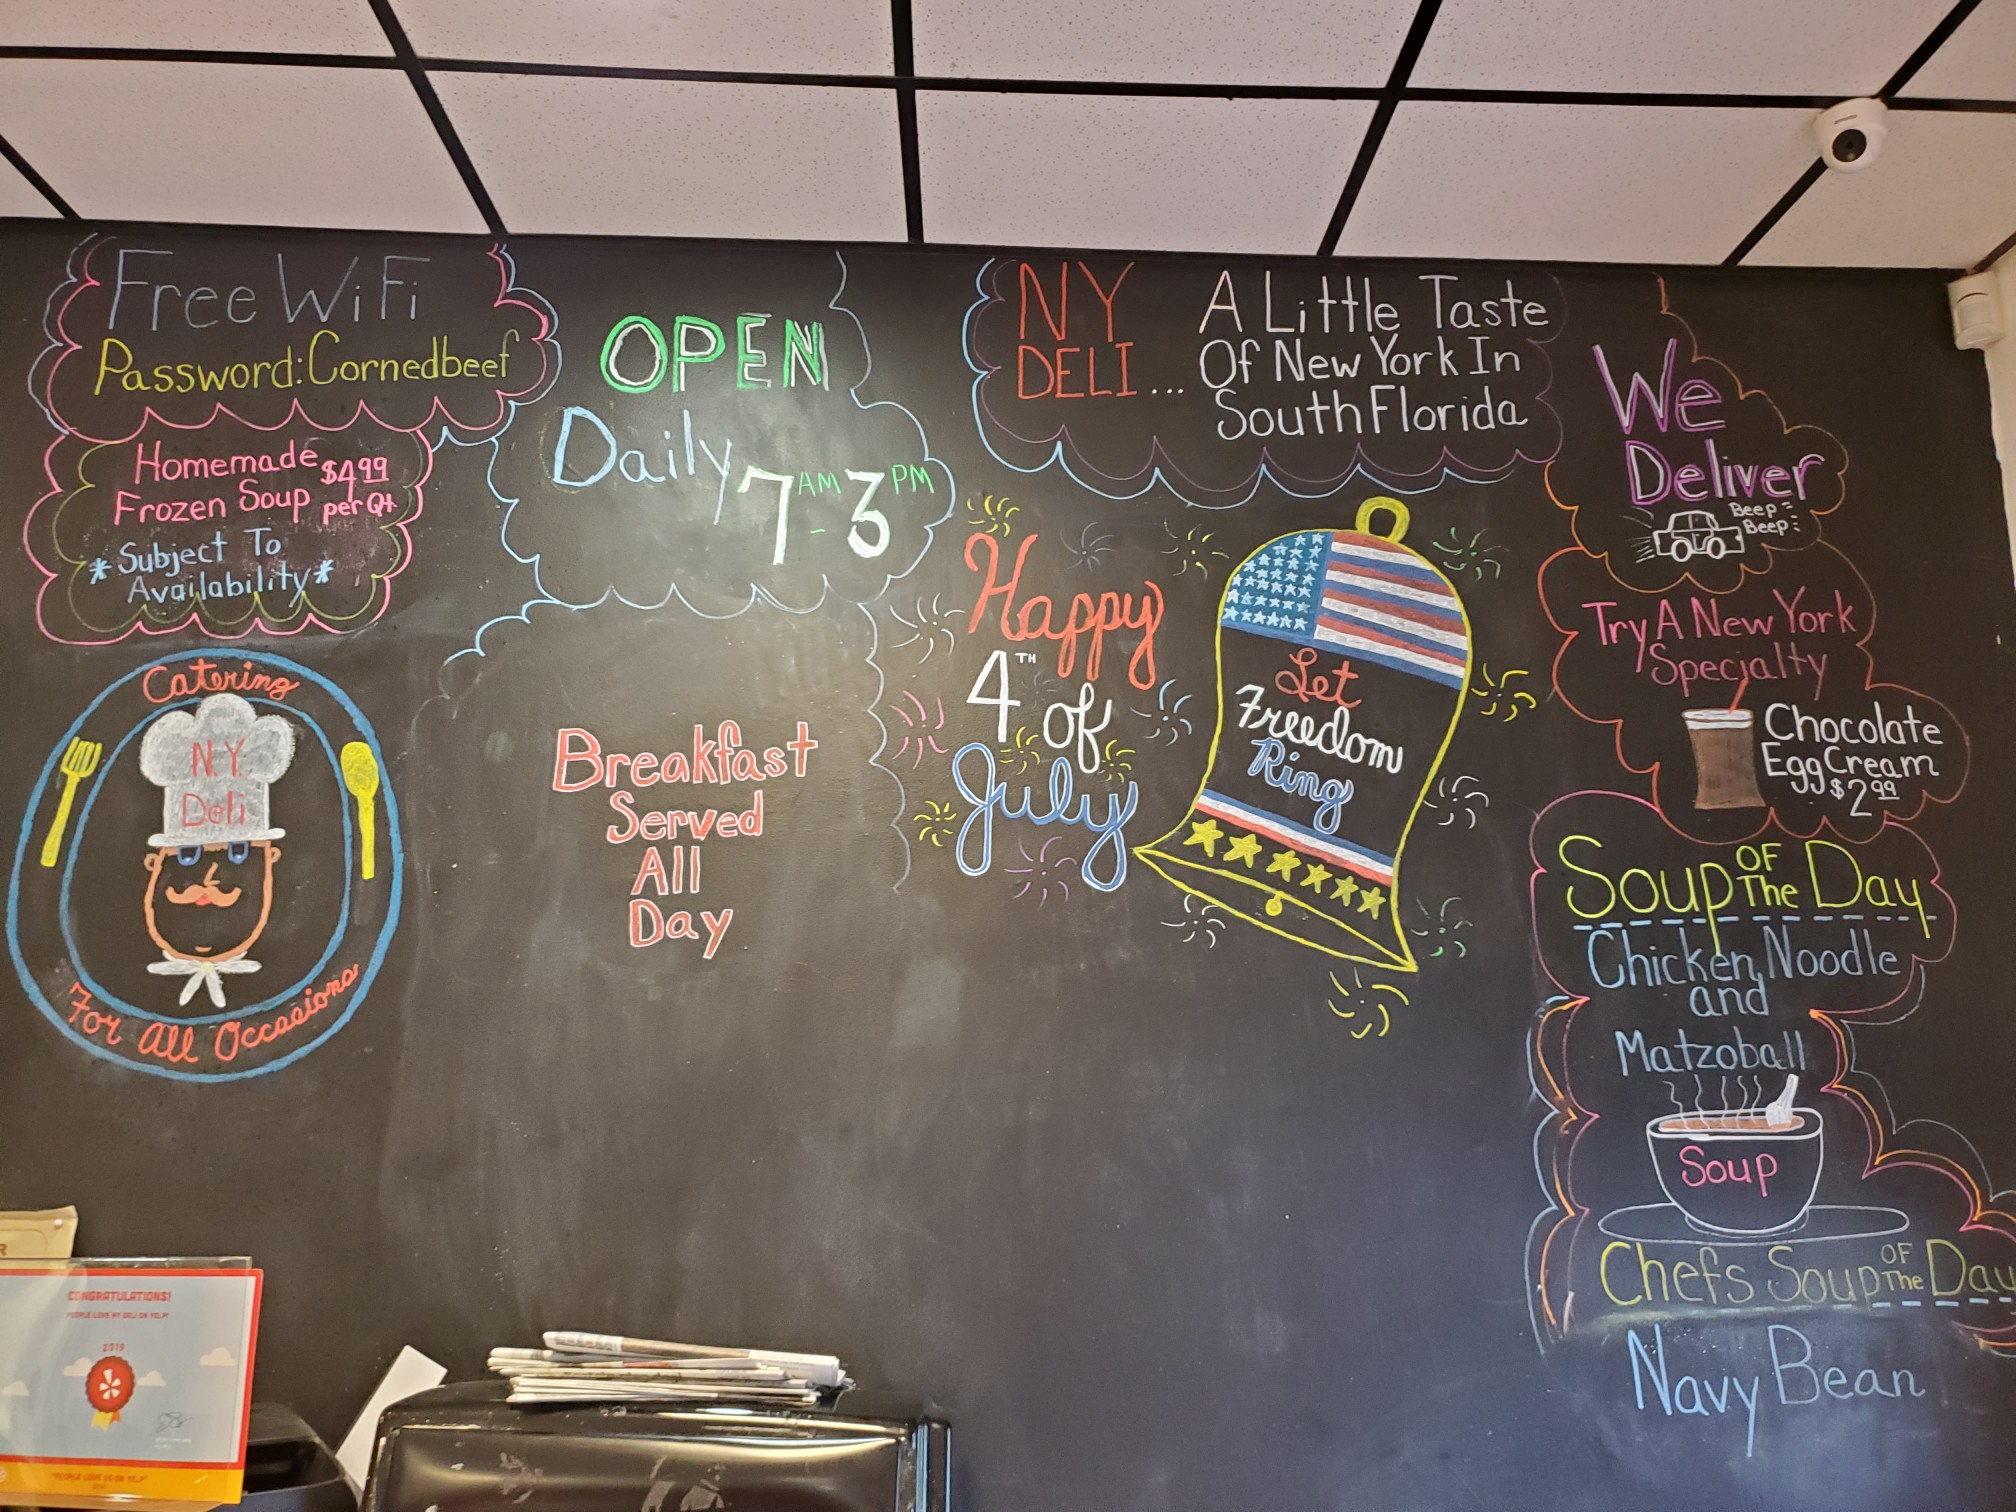 Free WiFi
Password: Cornedbeef
Homemade
Frozen Soup
$4.99
per Qt.
*Subject To
Availability*
Catering
N.Y.
Deli
For All Occasions
OPEN
Daily
7 AM - 3 PM
Breakfast
Served
All
Day
NY
DELI...
A Little Taste
Of New York In
South Florida
Happy
4TH of
July
Let
Freedom
Ring
We
Deliver
Beep
Beep
Try A New York
Specialty
Chocolate
Egg Cream
$2.99
Soup OF The Day
Chicken Noodle
and
Matzoball
Soup
Chefs Soup OF The Day
Navy Bean
CONGRATULATIONS!
PEOPLE LOVE NY DELI ON YELP!
2019
"PEOPLE LOVE US ON YELP"